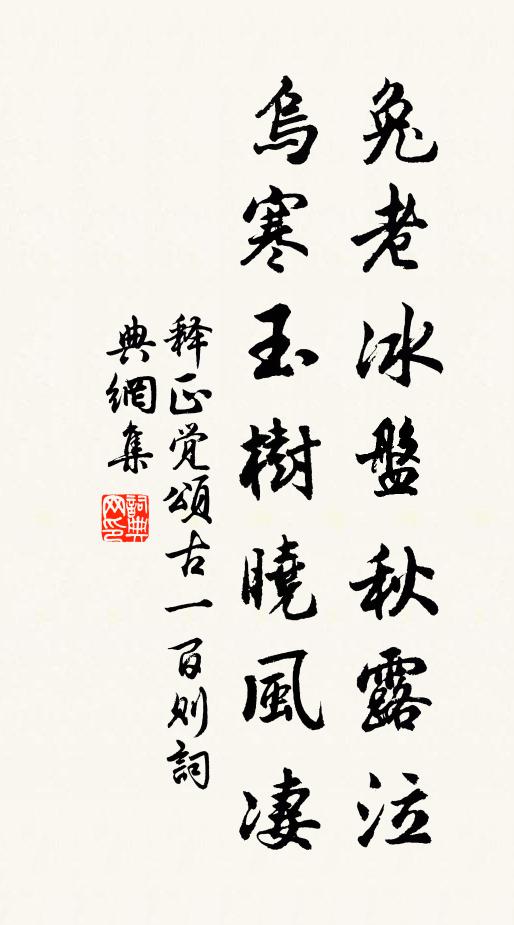 兔老冰盤秋露泣
烏寒玉樹曉風凄
释正觉頌古一百则詞
典網集
詞典網印